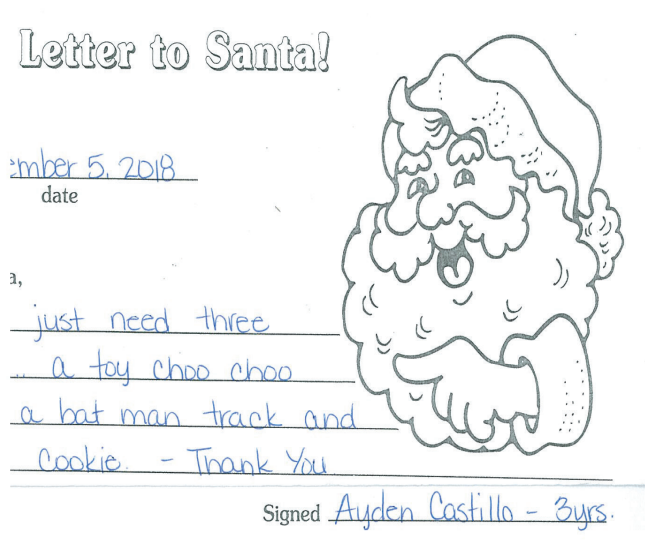 Letter to Santa!
ember 5, 2018
date
a,
just need three
... a toy choo choo
a bat man track and
Cookie. - Thank You
Signed Ayden Castillo - 3yrs.